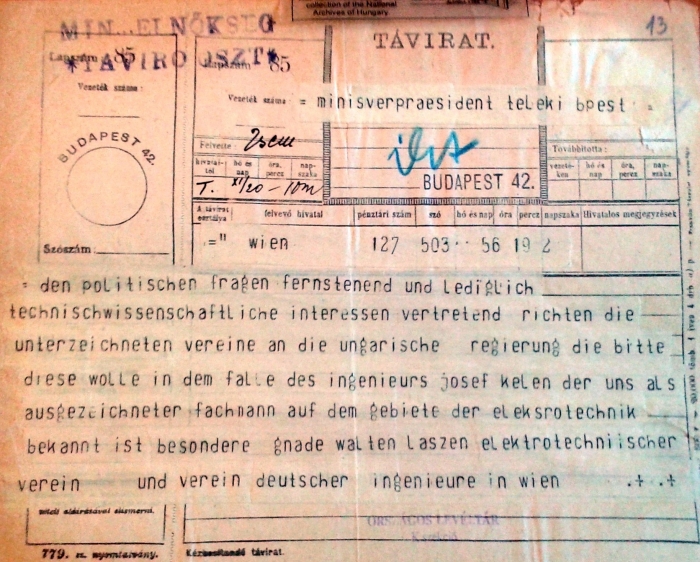 collection of the National
Archives of Hungary.
MIN. ELNÖKSÉG
TÁVIRO OSZT
13
TÁVIRAT.
Lapszám 85
Lapszám 85
Vezeték száma:
Vezeték száma: = minisverpraesident teleki bpest =
BUDAPEST 42.
Felvette:
Továbbította:
hivatal-tól
hó és nap
óra, perez
nap-szaka
vezeté-ken
hó és nap
óra, perez
nap-szaka
T. XI/20 - 10m
BUDAPEST 42.
A távirat osztálya
felvevő hivatal
pénztári szám
szó
hó és nap
óra
perez
napszaka
Hivatalos megjegyzések
Szószám:
=" wien 127 503·· 56 19 2
= den politischen fragen fernstenend und lediglich
technischwissenschaftliche interessen vertretend richten die
unterzeichneten vereine an die ungarische regierung die bitte
diese wolle in dem falle des ingenieurs josef kelen der uns als
ausgezeichneter fachmann auf dem gebiete der eleksrotechnik
bekannt ist besondere gnade walten laszen elektrotechniischer
verein und verein deutscher ingenieure in wien .+.+
ORSZÁGOS LEVÉLTÁR
779. sz. nyomtatvány.
Kézbesítendő távirat.